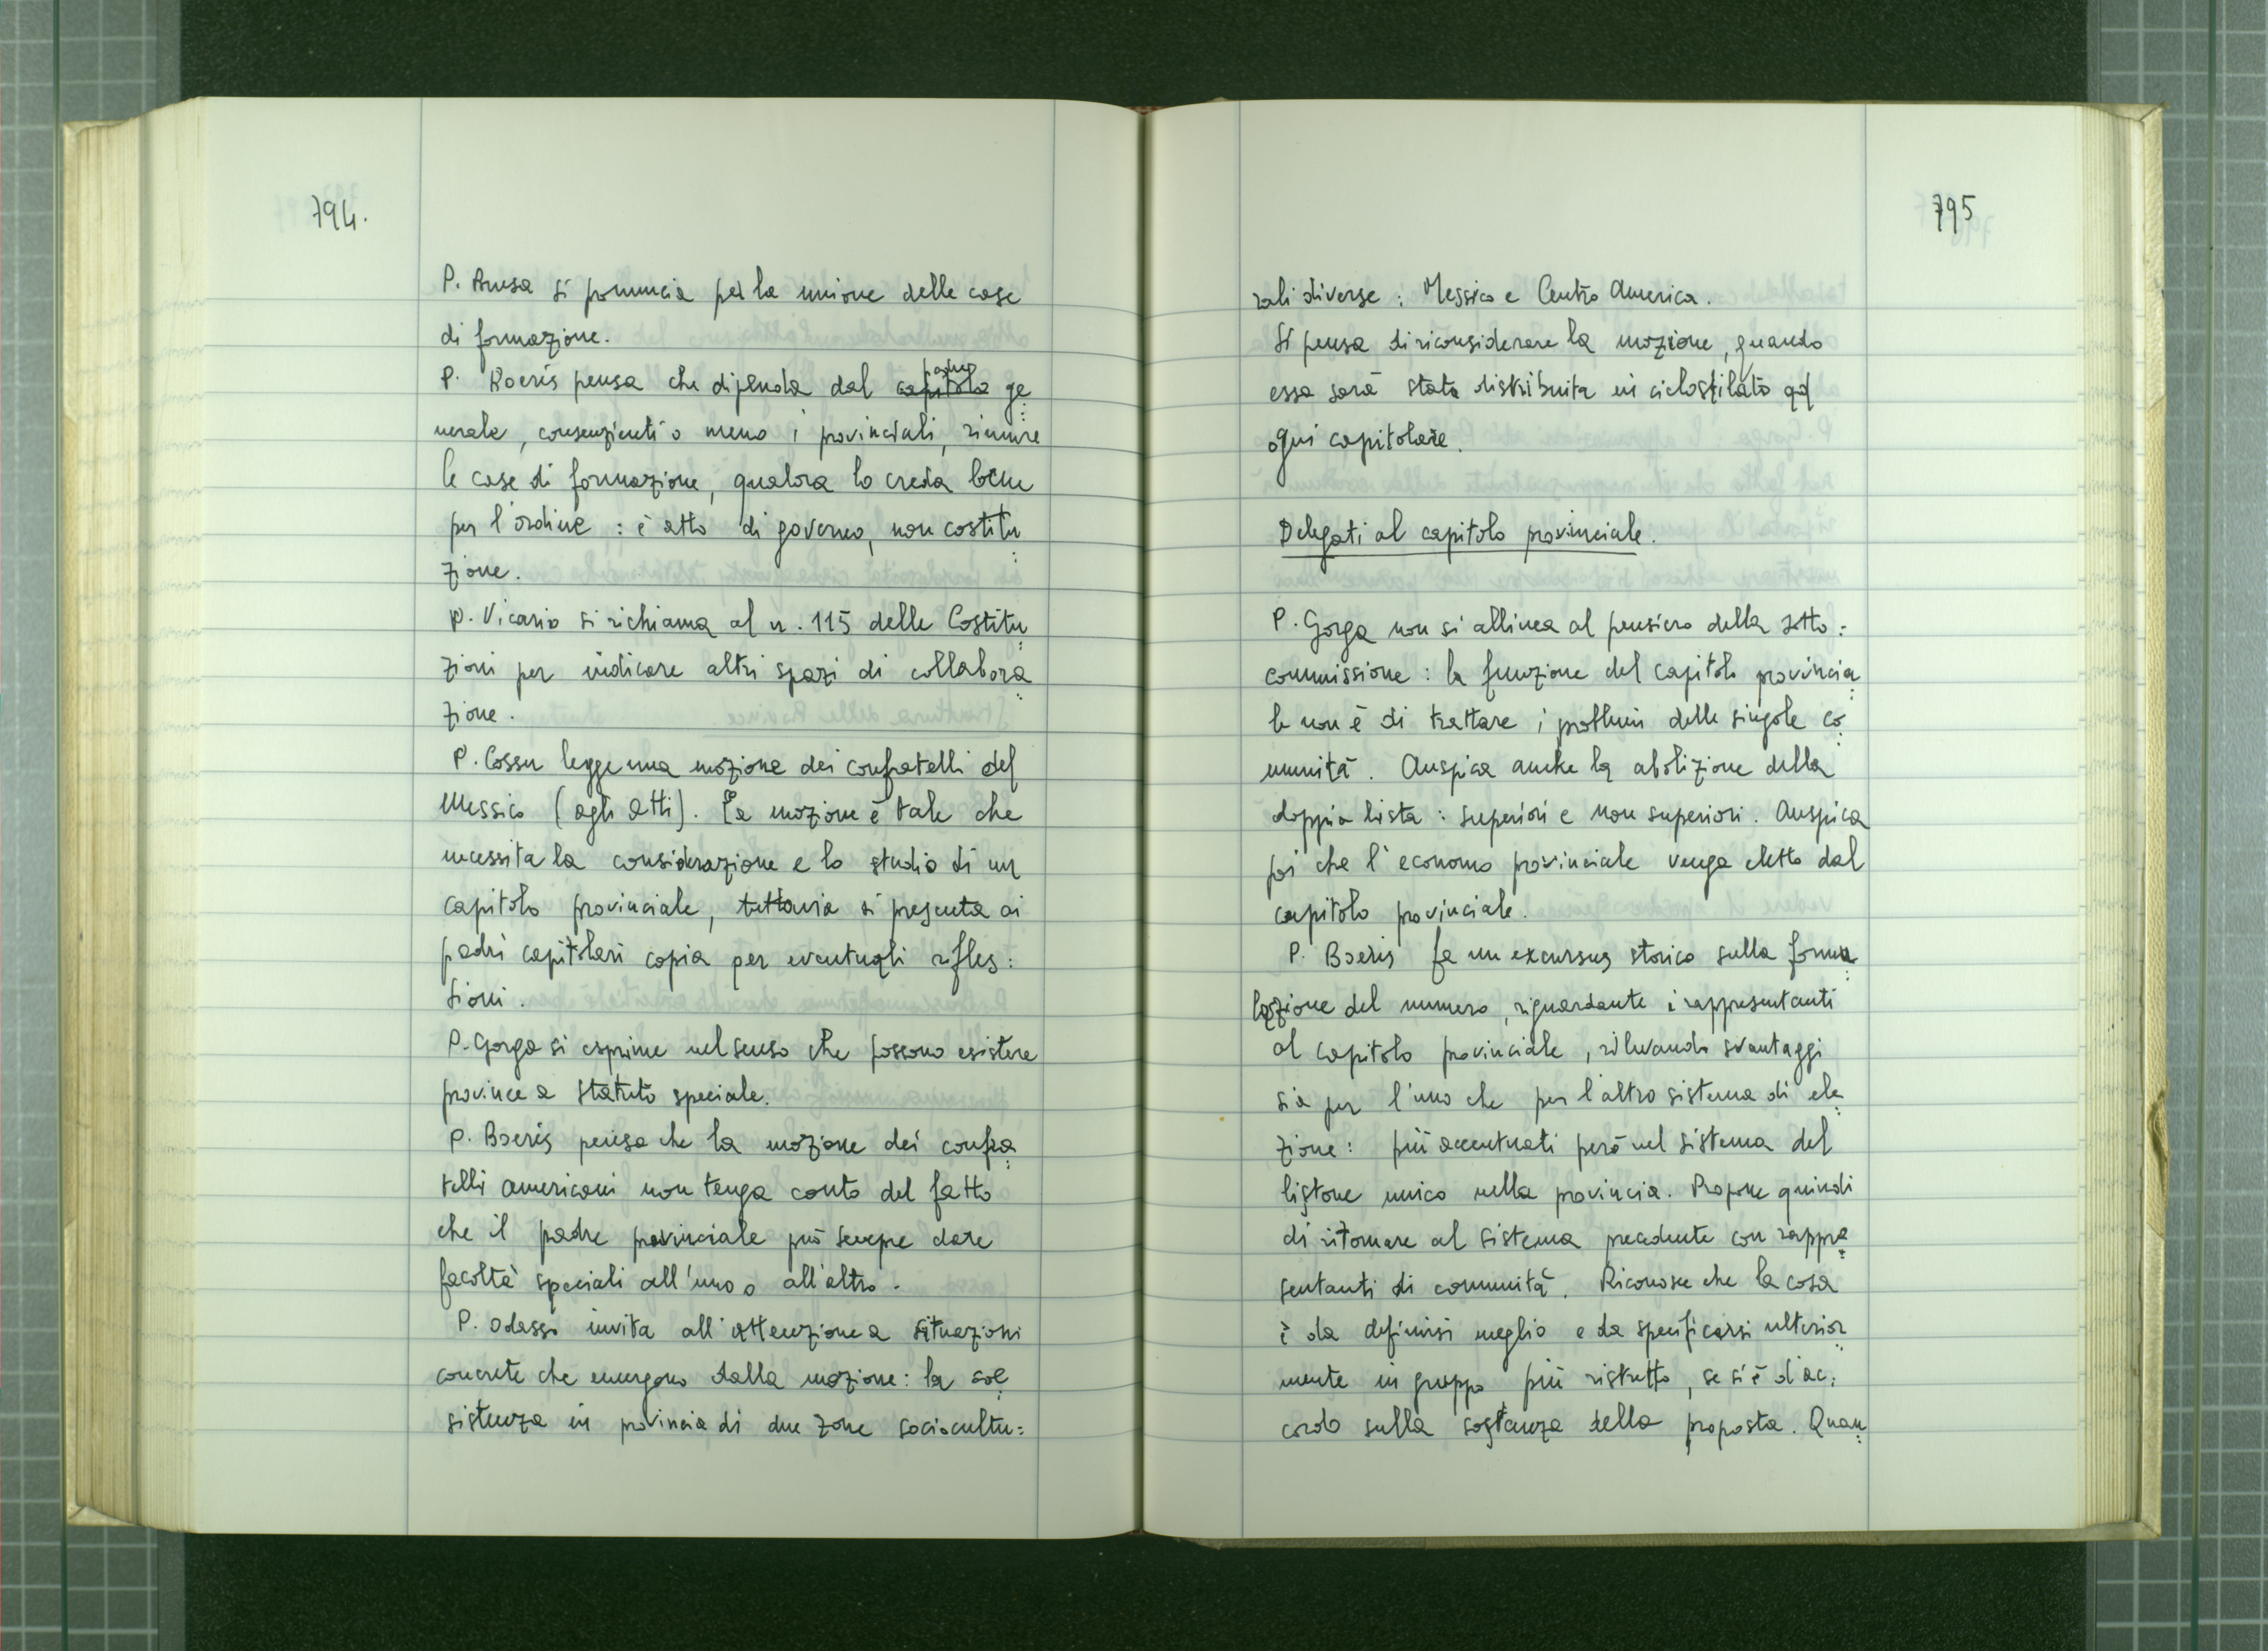 794.
P. Amsa si pronuncia per la unione delle case
di formazione.
P. Boeris pensa che dipenda dal capitolo padre ge
nerale, consenzienti o meno i provinciali, riunire
le case di formazione, qualora lo creda bene
per l'ordine : è atto di governo, non costitu
zione.
P. Vicario si richiama al n. 115 delle Costitu
zioni per indicare altri spazi di collabora
zione.
P. Cossu legge una mozione dei confratelli del
Messico (agli atti). La mozione è tale che
necessita la considerazione e lo studio di un
capitolo provinciale, tuttavia si presenta ai
padri capitolari copia per eventuali rifles:
sioni.
P. Gorga si esprime nel senso che possono esistere
province a statuto speciale.
P. Boeris pensa che la mozione dei confra
telli americani non tenga conto del fatto
che il padre provinciale può sempre dare
facoltà speciali all'uno o all'altro.
P. Odasso invita all'attenzione a situazioni
concrete che emergono dalla mozione: la coe
sistenza in provincia di due zone sociocultu=
795
rali diverse : Messico e Centro America.
Si pensa di riconsiderare la mozione, quando
essa sarà stata distribuita in ciclostilato ad
ogni capitolare.
Delegati al capitolo provinciale.
P. Gorga non si allinea al pensiero della sotto:
commissione : la funzione del capitolo provincia
le non è di trattare i problemi delle singole co
munità. Auspica anche la abolizione della
doppia lista : superiori e non superiori. Auspica
poi che l'economo provinciale venga eletto dal
capitolo provinciale.
P. Boeris fa un excursus storico sulla formu
lazione del numero, riguardante i rappresentanti
al capitolo provinciale, rilevando svantaggi
sia per l'uno che per l'altro sistema di ele
zione: più accentuati però nel sistema del
listone unico nella provincia. Propone quindi
di ritornare al sistema precedente con rappre
sentanti di comunità. Riconosce che la cosa
è da definirsi meglio e da specificarsi ulterior
mente in gruppo più ristretto, se si è d'ac:
cordo sulla sostanza della proposta. Quan